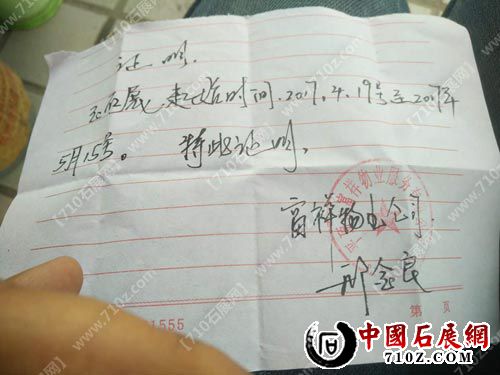 证明
玉石展,起始时间.2017.4.19号至2017年
5月15号。特此证明,
富祥物业公司.
富祥物业服务
邢金良
第 页
1555
中國石展網
710Z.COM
【710z石展网】